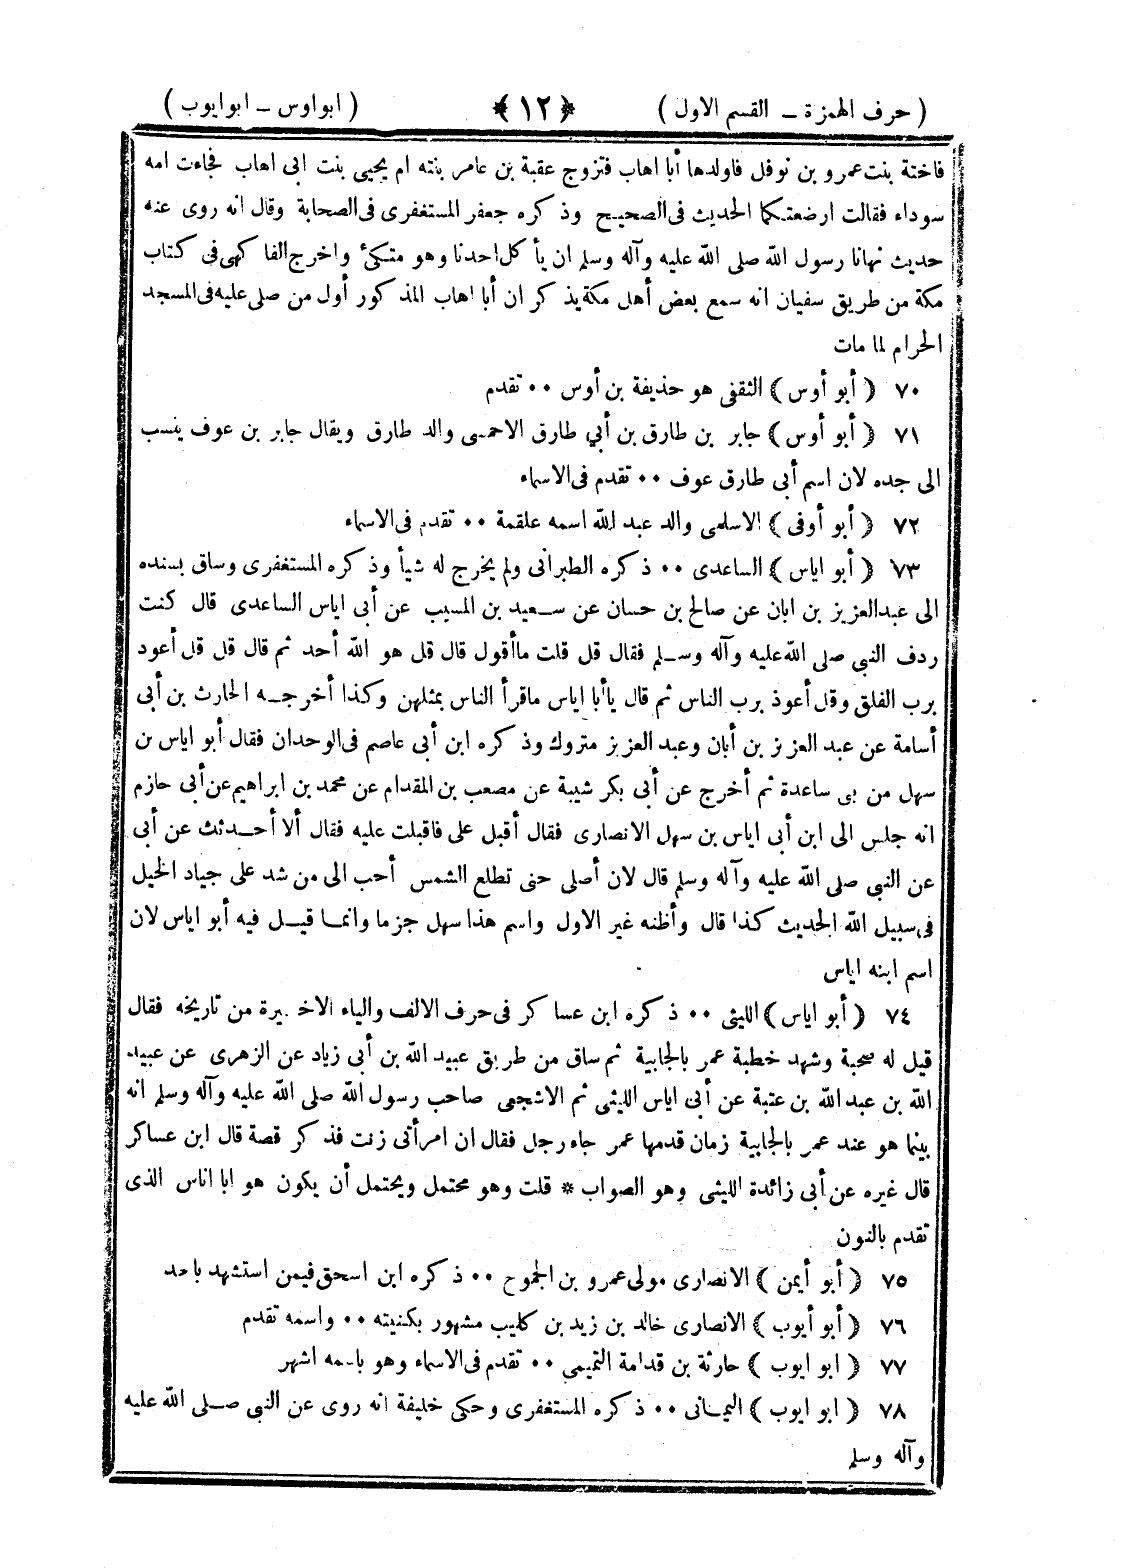 ( حرف الهمزة – القسم الاول ) ﴿ ١٢ ﴾ ( ابواوس – ابوايوب )
فاختة بنت عمرو بن نوفل فاولدها أبا اهاب فتزوج عقبة بن عامر بنته ام يحيى بنت ابى اهاب فجاءت امه
سوداء فقالت ارضعتكما الحديث فى الصحيح وذكره جعفر المستغفرى فى الصحابة وقال انه روى عنه
حديث نهانا رسول الله صلى الله عليه وآله وسلم ان يأكل احدنا وهو متكئ واخرج الفاكهى فى كتاب
مكة من طريق سفيان انه سمع بعض أهل مكة يذكر ان أبا اهاب المذكور أول من صلى عليه فى المسجد
الحرام لما مات
٧٠ ﴿ أبو أوس ﴾ الثقفى هو حذيفة بن أوس ٠٠ تقدم
٧١ ﴿ أبو أوس ﴾ جابر بن طارق بن أبي طارق الاحمسى والد طارق ويقال جابر بن عوف ينسب
الى جده لان اسم أبى طارق عوف ٠٠ تقدم فى الاسماء
٧٢ ﴿ أبو أوفى ﴾ الاسلمى والد عبد الله اسمه علقمة ٠٠ تقدم فى الاسماء
٧٣ ﴿ أبو اياس ﴾ الساعدى ٠٠ ذكره الطبرانى ولم يخرج له شيأ وذكره المستغفرى وساق بسنده
الى عبدالعزيز بن ابان عن صالح بن حسان عن سعيد بن المسيب عن أبى اياس الساعدى قال كنت
ردف النبى صلى الله عليه وآله وسلم فقال قل قلت ماأقول قال قل هو الله أحد ثم قال قل قل أعود
برب الفلق وقل أعوذ برب الناس ثم قال ياأبا اياس ماقرأ الناس بمثلهن وكذا أخرجه الحارث بن أبى
أسامة عن عبد العزيز بن أبان وعبد العزيز متروك وذكره ابن أبى عاصم فى الوحدان فقال أبو اياس بن
سهل من بى ساعدة ثم أخرج عن أبى بكر شيبة عن مصعب بن المقدام عن محمد بن ابراهيم عن أبى حازم
انه جلس الى ابن أبى اياس بن سهل الانصارى فقال أقبل على فاقبلت عليه فقال ألا أحدثث عن أبى
عن النبى صلى الله عليه وآله وسلم قال لان أصلى حتى تطلع الشمس أحب الى من شد على جياد الخيل
فى سبيل الله الحديث كذا قال وأظنه غير الاول واسم هذا سهل جزما وانما قيل فيه أبو اياس لان
اسم ابنه اياس
٧٤ ﴿ أبو اياس ﴾ الليثى ٠٠ ذكره ابن عساكر فى حرف الالف والياء الاخيرة من تاريخه فقال
قيل له صحبة وشهد خطبة عمر بالجابية ثم ساق من طريق عبيد الله بن أبى زياد عن الزهرى عن عبيد
الله بن عبد الله بن عتبة عن أبى اياس الليثى ثم الاشجعى صاحب رسول الله صلى الله عليه وآله وسلم انه
بينما هو عند عمر بالجابية زمان قدمها عمر جاء رجل فقال ان امرأتى زنت فذكر قصة قال ابن عساكر
قال غيره عن أبى زائدة الليثى وهو الصواب * قلت وهو محتمل ويحتمل أن يكون هو ابا اناس الذى
تقدم بالنون
٧٥ ﴿ أبو أيمن ﴾ الانصارى مولى عمرو بن الجموح ٠٠ ذكره ابن اسحق فيمن استشهد باحد
٧٦ ﴿ أبو أيوب ﴾ الانصارى خالد بن زيد بن كليب مشهور بكنيته ٠٠ واسمه تقدم
٧٧ ﴿ ابو ايوب ﴾ حارثة بن قدامة التميمى ٠٠ تقدم فى الاسماء وهو باسمه اشهر
٧٨ ﴿ ابو ايوب ﴾ اليمانى ٠٠ ذكره المستغفرى وحكى خليفة انه روى عن النبى صلى الله عليه
وآله وسلم